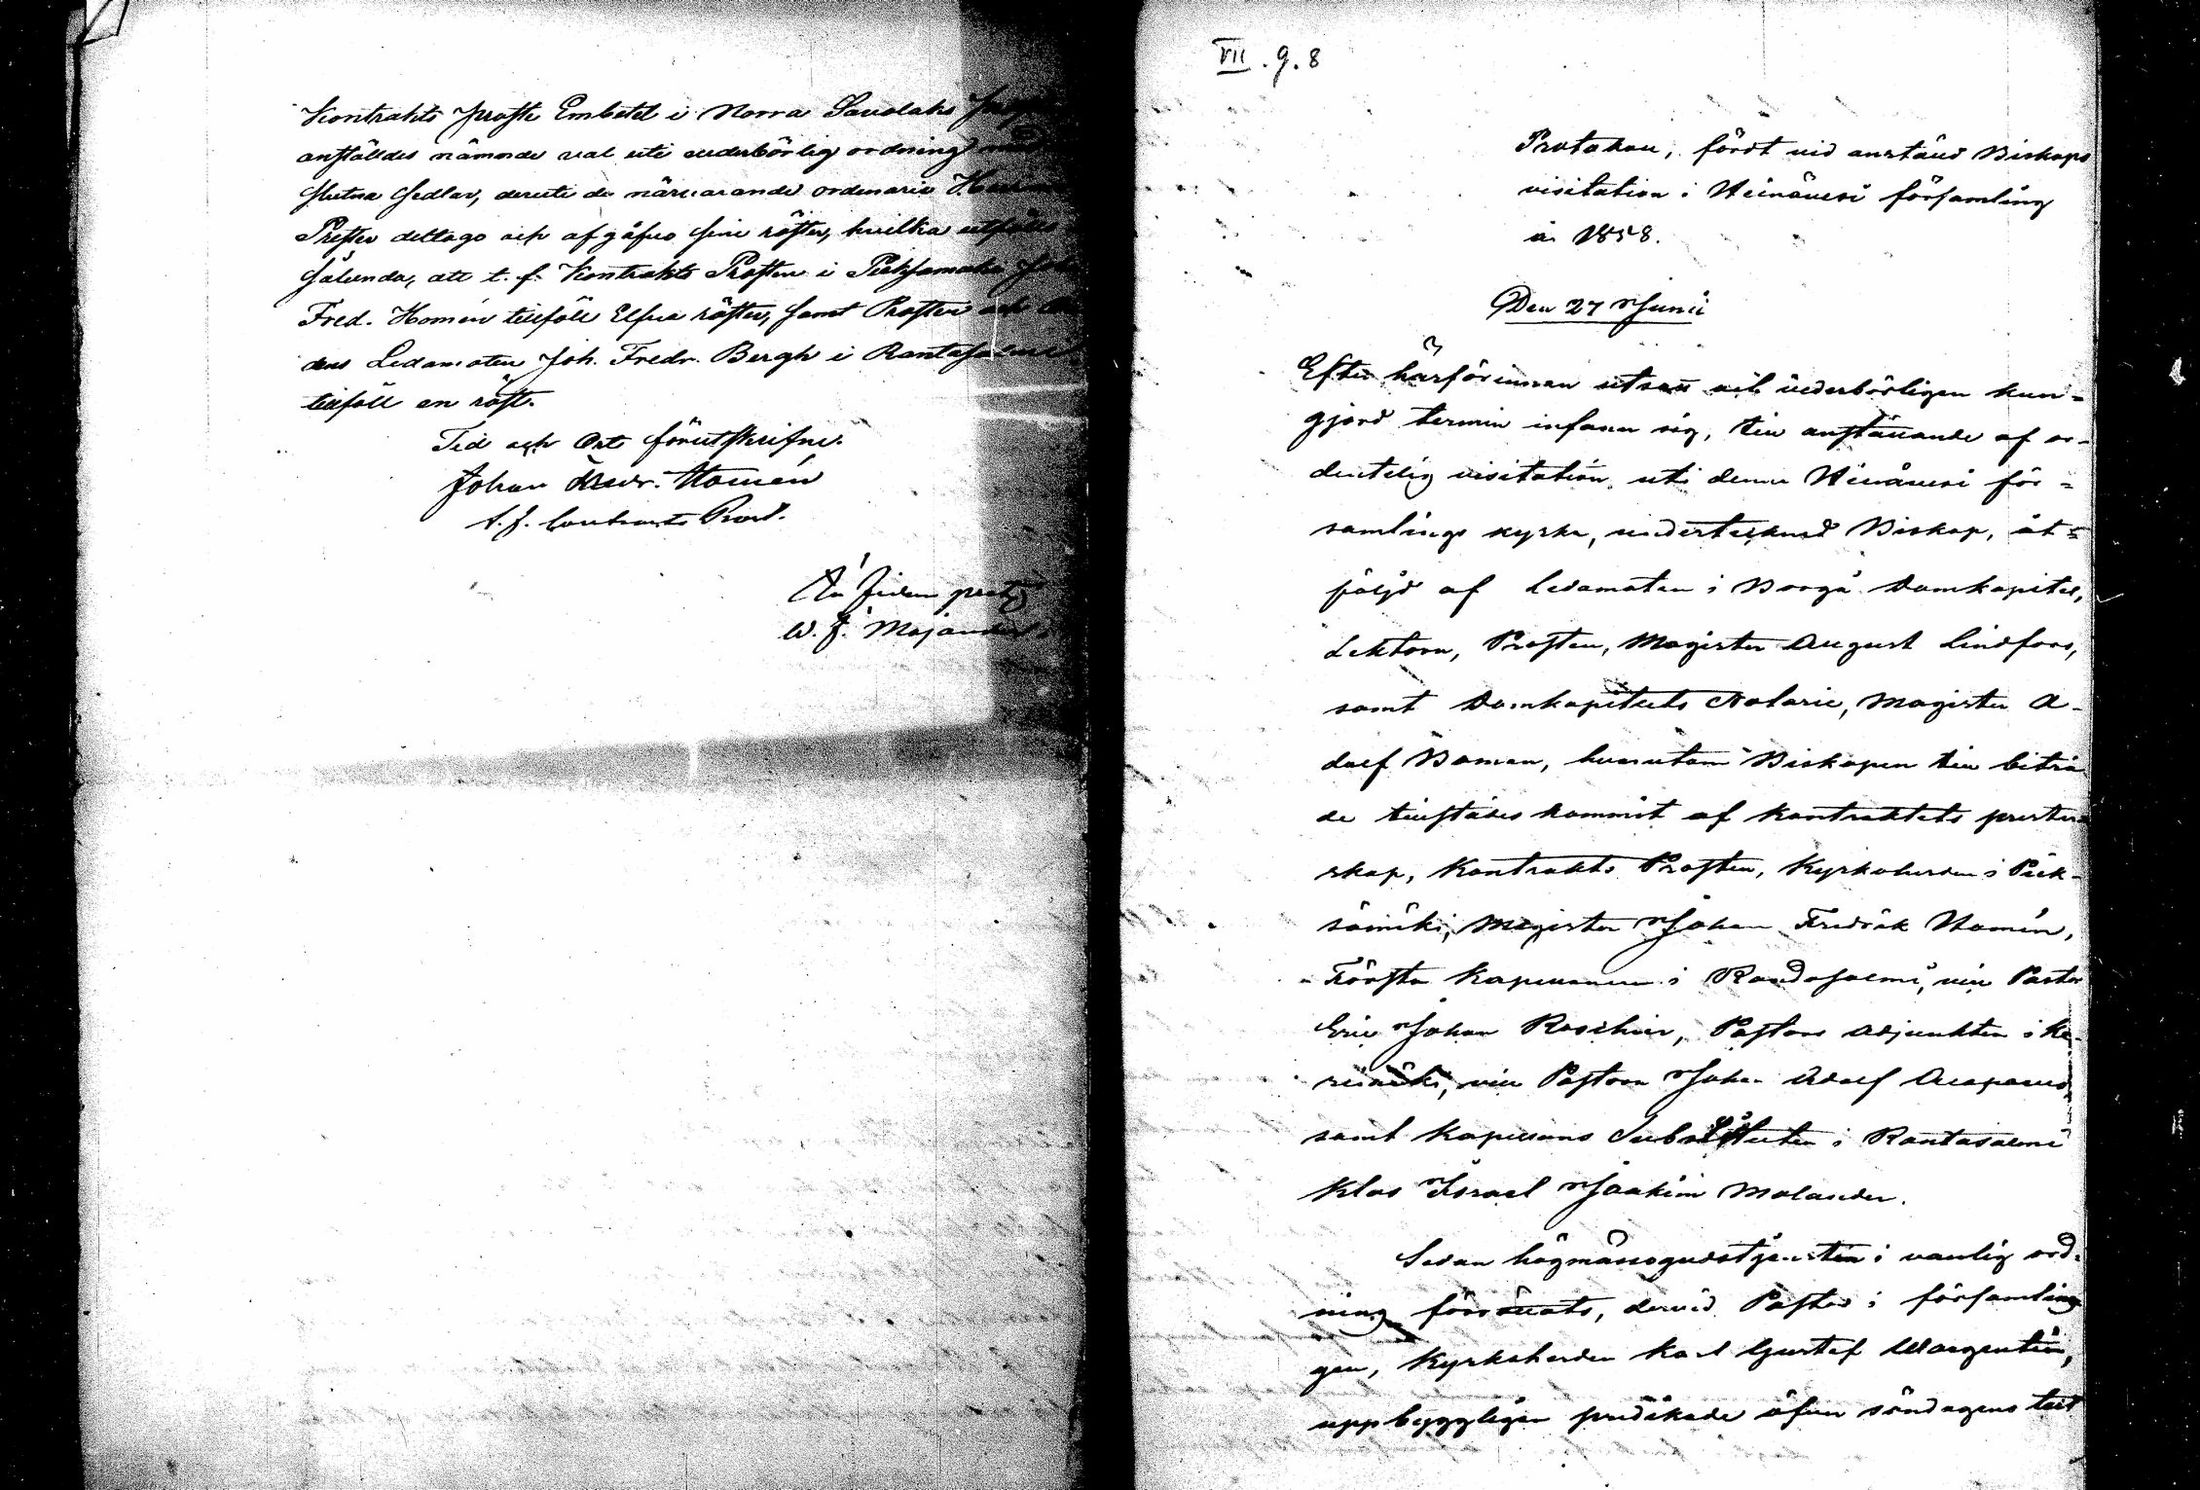 Kontrakts Prosts Embetet i Norra Savolaks
anställdes nämnde val uti vederbörlig ordning med
slutna sedlar, deruti de närvarande ordinarie
Prester deltogo och afgåfvo sine röster, hvilka utföllo
sålunda, att t. f. Kontrakts Prosten i Pieksämäki Joh.
Fred. Homén tillföll Elfva röster, samt Prosten och
dens Ledamoten Joh. Fredr. Bergh i Rantasalmi
tillföll en röst.
Tid och Ort förutskrifne.
Johan Fredr. Homén
t. f. Contracts Prost.
In fidem
W. F. Majander
VII. g. 8
Protokoll, fördt vid anstäld Biskops
visitation i Heinävesi församling
år 1858.
Den 27 Junii
Efter härförinnan utsatt och vederbörligen kun-
gjord termin infann sig, till anställande af or-
dentelig visitation, uti denna Heinävesi för-
samlings kyrka, undertecknad Biskop, åt-
följd af Ledamoten i Borgå Domkapitel,
Lektorn, Prosten, Magister August Lindfors,
samt Domkapitlets Notarie, Magister A-
dolf Boman, hvarutom Biskopen till biträ-
de tillstädes kommit af kontraktets prester-
skap, Kontrakts Prosten, Kyrkoherden i Piek-
sämäki, Magister Johan Fredrik Homén,
Första Kapellanen i Randasalmi, vice Pastor
Eric Johan Roschier, Pastors Adjunkten i Ke-
rimäki, vice Pastorn Johan Adolf
samt Kapellans Substituten i Rantasalmi
Klas Israel Joakim Molander.
Sedan högmässogudstjensten i vanlig ord-
ning förrättats, dervid Pastor i församlin-
gen, Kyrkoherden Karl Gustaf Wargentin,
uppbyggligen predikade öfver söndagens text